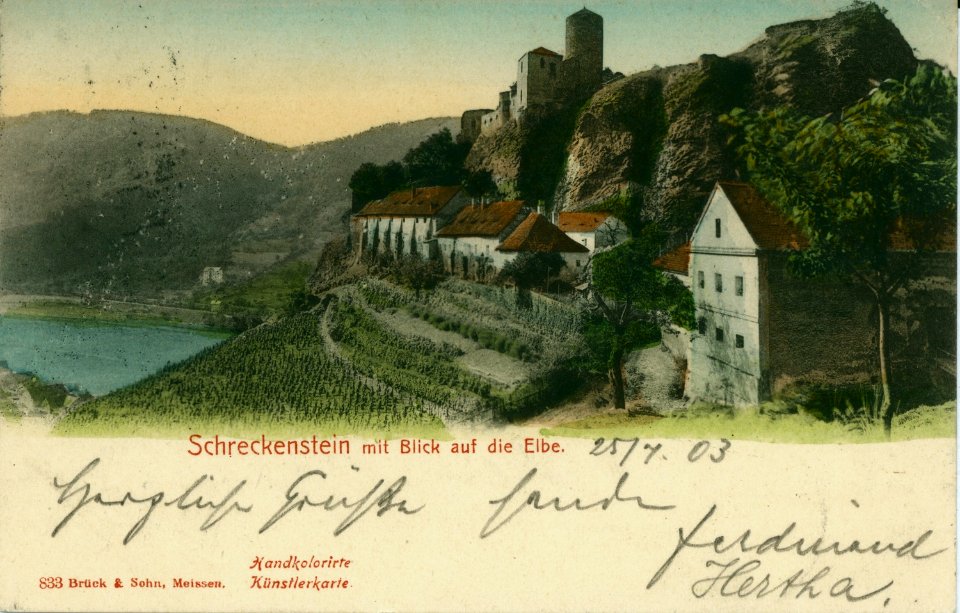 Schreckenstein mit Blick auf die Elbe. 25/4. 03
Herzliche Grüße sendet
Ferdinand
Hertha.
Handkolorirte
Künstlerkarte.
833 Brück & Sohn, Meissen.